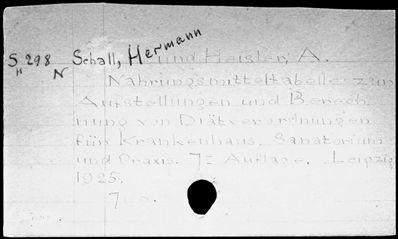 S 298 Schall, Hermann
H N und Heisler, A.
Nahrungsmitteltabelle zur
Aufstellungen und Berech-
nung von Diätverordnungen
für Krankenhaus, Sanatorium
und Praxis. 7= Auflage. Leipzig
1925.